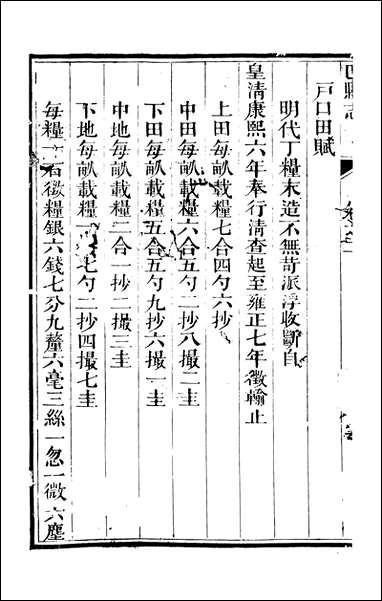 巴縣志
戶口田賦
明代丁糧末造不無苛派浮收斷自
皇清康熙六年奉行清查起至雍正七年徵輸止
上田每畝載糧七合四勺六抄
中田每畝載糧六合五勺二抄八撮二圭
下田每畝載糧五合五勺九抄六撮一圭
中地每畝載糧二合一抄二撮三圭
下地每畝載糧一 七勺二抄四撮七圭
每糧一石徵糧銀六錢七分九釐六毫三絲一忽一微六塵